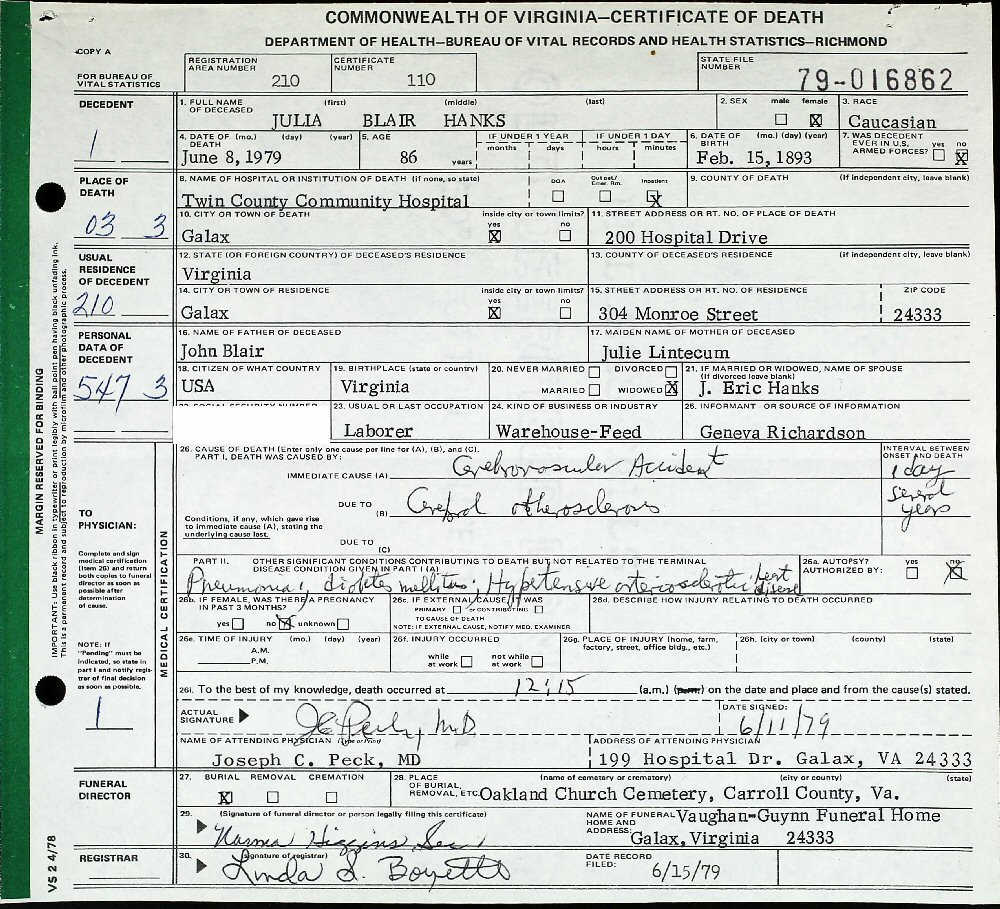 COMMONWEALTH OF VIRGINIA—CERTIFICATE OF DEATH
DEPARTMENT OF HEALTH—BUREAU OF VITAL RECORDS AND HEALTH STATISTICS—RICHMOND
COPY A
FOR BUREAU OF VITAL STATISTICS
REGISTRATION AREA NUMBER 210
CERTIFICATE NUMBER 110
STATE FILE NUMBER 79-016862
DECEDENT
1
1. FULL NAME OF DECEASED (first) (middle) (last)
JULIA BLAIR HANKS
2. SEX male female X
3. RACE Caucasian
4. DATE OF DEATH (mo.) (day) (year) June 8, 1979
5. AGE 86 years
IF UNDER 1 YEAR months days
IF UNDER 1 DAY hours minutes
6. DATE OF BIRTH (mo.) (day) (year) Feb. 15, 1893
7. WAS DECEDENT EVER IN U.S. ARMED FORCES? yes no X
PLACE OF DEATH
03 3
8. NAME OF HOSPITAL OR INSTITUTION OF DEATH (if none, so state)
Twin County Community Hospital
DOA Out pat./Emer. Rm. Inpatient X
9. COUNTY OF DEATH (if independent city, leave blank)
10. CITY OR TOWN OF DEATH Galax
inside city or town limits? yes X no
11. STREET ADDRESS OR RT. NO. OF PLACE OF DEATH
200 Hospital Drive
USUAL RESIDENCE OF DECEDENT
210
12. STATE (OR FOREIGN COUNTRY) OF DECEASED'S RESIDENCE
Virginia
13. COUNTY OF DECEASED'S RESIDENCE (if independent city, leave blank)
14. CITY OR TOWN OF RESIDENCE Galax
inside city or town limits? yes X no
15. STREET ADDRESS OR RT. NO. OF RESIDENCE ZIP CODE
304 Monroe Street 24333
PERSONAL DATA OF DECEDENT
547 3
16. NAME OF FATHER OF DECEASED
John Blair
17. MAIDEN NAME OF MOTHER OF DECEASED
Julie Lintecum
18. CITIZEN OF WHAT COUNTRY USA
19. BIRTHPLACE (state or country) Virginia
20. NEVER MARRIED DIVORCED
MARRIED WIDOWED X
21. IF MARRIED OR WIDOWED, NAME OF SPOUSE (if divorced leave blank)
J. Eric Hanks
23. USUAL OR LAST OCCUPATION Laborer
24. KIND OF BUSINESS OR INDUSTRY Warehouse-Feed
25. INFORMANT - OR SOURCE OF INFORMATION Geneva Richardson
TO PHYSICIAN:
Complete and sign medical certification (Item 26) and return both copies to funeral director as soon as possible after determination of cause.
NOTE: If "Pending" must be indicated, so state in part I and notify registrar of final decision as soon as possible.
1
MEDICAL CERTIFICATION
26. CAUSE OF DEATH (Enter only one cause per line for (A), (B), and (C).
PART I. DEATH WAS CAUSED BY:
INTERVAL BETWEEN ONSET AND DEATH
IMMEDIATE CAUSE (A) Cerebrovascular Accident 1 day
DUE TO (B) Cerebral atherosclerosis several years
Conditions, if any, which gave rise to immediate cause (A), stating the underlying cause last.
DUE TO (C)
PART II. OTHER SIGNIFICANT CONDITIONS CONTRIBUTING TO DEATH BUT NOT RELATED TO THE TERMINAL DISEASE CONDITION GIVEN IN PART I (A)
Pneumonia; diabetes mellitus; Hypertensive arteriosclerotic heart disease
26a. AUTOPSY? AUTHORIZED BY: yes no X
26b. IF FEMALE, WAS THERE A PREGNANCY IN PAST 3 MONTHS?
yes no X unknown
26c. IF EXTERNAL CAUSE, IT WAS
PRIMARY or CONTRIBUTING
TO CAUSE OF DEATH
NOTE: IF EXTERNAL CAUSE, NOTIFY MED. EXAMINER
26d. DESCRIBE HOW INJURY RELATING TO DEATH OCCURRED
26e. TIME OF INJURY (mo.) (day) (year)
A.M.
P.M.
26f. INJURY OCCURRED
while at work not while at work
26g. PLACE OF INJURY (home, farm, factory, street, office bldg., etc.)
26h. (city or town) (county) (state)
26i. To the best of my knowledge, death occurred at 12:15 (a.m.) (p.m.) on the date and place and from the cause(s) stated.
ACTUAL SIGNATURE M.D.
DATE SIGNED: 6/11/79
NAME OF ATTENDING PHYSICIAN (Type or Print)
Joseph C. Peck, MD
ADDRESS OF ATTENDING PHYSICIAN
199 Hospital Dr. Galax, VA 24333
FUNERAL DIRECTOR
27. BURIAL REMOVAL CREMATION
X
28. PLACE OF BURIAL, REMOVAL, ETC. (name of cemetery or crematory) (city or county) (state)
Oakland Church Cemetery, Carroll County, Va.
29. (Signature of funeral director or person legally filing this certificate)
NAME OF FUNERAL HOME AND ADDRESS: Vaughan-Guynn Funeral Home
Galax, Virginia 24333
REGISTRAR
30. (signature of registrar)
Linda S. Boyette
DATE RECORD FILED: 6/15/79
MARGIN RESERVED FOR BINDING
IMPORTANT: Use black ribbon in typewriter or print legibly with ball point pen having black unfading ink.
This is a permanent record and subject to reproduction by microfilm and other photographic process.
VS 2 4/78